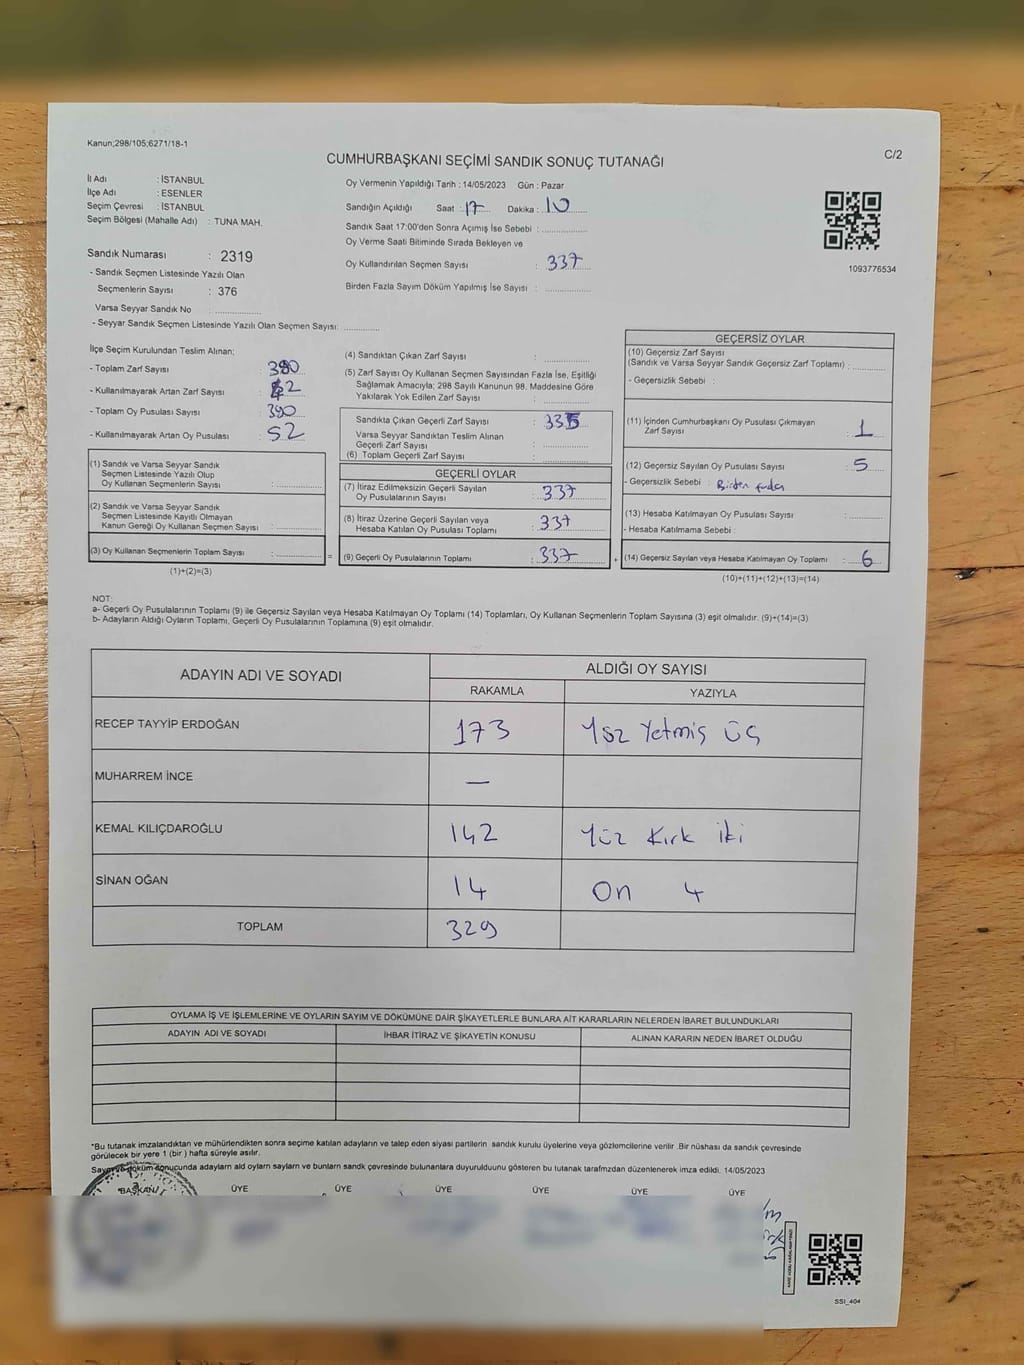 Kanun;298/105;6271/18-1
C/2
CUMHURBAŞKANI SEÇİMİ SANDIK SONUÇ TUTANAĞI
İl Adı : İSTANBUL
İlçe Adı : ESENLER
Seçim Çevresi : İSTANBUL
Seçim Bölgesi (Mahalle Adı) : TUNA MAH.
Oy Vermenin Yapıldığı Tarih : 14/05/2023 Gün : Pazar
Sandığın Açıldığı Saat : 17 Dakika : 10
Sandık Saat 17:00'den Sonra Açımış İse Sebebi :
Oy Verme Saati Bitiminde Sırada Bekleyen ve
Oy Kullandırılan Seçmen Sayısı : 337
Birden Fazla Sayım Döküm Yapılmış İse Sayısı :
1093776534
Sandık Numarası : 2319
- Sandık Seçmen Listesinde Yazılı Olan
Seçmenlerin Sayısı : 376
Varsa Seyyar Sandık No
- Seyyar Sandık Seçmen Listesinde Yazılı Olan Seçmen Sayısı:
İlçe Seçim Kurulundan Teslim Alınan;
- Toplam Zarf Sayısı : 380
- Kullanılmayarak Artan Zarf Sayısı :
- Toplam Oy Pusulası Sayısı : 390
- Kullanılmayarak Artan Oy Pusulası : 52
(1) Sandık ve Varsa Seyyar Sandık
Seçmen Listesinde Yazılı Olup
Oy Kullanan Seçmenlerin Sayısı :
(2) Sandık ve Varsa Seyyar Sandık
Seçmen Listesinde Kayıtlı Olmayan
Kanun Gereği Oy Kullanan Seçmen Sayısı :
(3) Oy Kullanan Seçmenlerin Toplam Sayısı : =
(1)+(2)=(3)
(4) Sandıktan Çıkan Zarf Sayısı :
(5) Zarf Sayısı Oy Kullanan Seçmen Sayısından Fazla İse, Eşitliği
Sağlamak Amacıyla; 298 Sayılı Kanunun 98. Maddesine Göre
Yakılarak Yok Edilen Zarf Sayısı :
Sandıkta Çıkan Geçerli Zarf Sayısı : 335
Varsa Seyyar Sandıktan Teslim Alınan
Geçerli Zarf Sayısı :
(6) Toplam Geçerli Zarf Sayısı :
GEÇERLİ OYLAR
(7) İtiraz Edilmeksizin Geçerli Sayılan
Oy Pusulalarının Sayısı : 337
(8) İtiraz Üzerine Geçerli Sayılan veya
Hesaba Katılan Oy Pusulası Toplamı : 337
(9) Geçerli Oy Pusulalarının Toplamı : 337 +
GEÇERSİZ OYLAR
(10) Geçersiz Zarf Sayısı
(Sandık ve Varsa Seyyar Sandık Geçersiz Zarf Toplamı) :
- Geçersizlik Sebebi :
(11) İçinden Cumhurbaşkanı Oy Pusulası Çıkmayan
Zarf Sayısı : 1
(12) Geçersiz Sayılan Oy Pusulası Sayısı : 5
- Geçersizlik Sebebi : Birden fazla
(13) Hesaba Katılmayan Oy Pusulası Sayısı :
- Hesaba Katılmama Sebebi :
(14) Geçersiz Sayılan veya Hesaba Katılmayan Oy Toplamı : 6
(10)+(11)+(12)+(13)=(14)
NOT:
a- Geçerli Oy Pusulalarının Toplamı (9) ile Geçersiz Sayılan veya Hesaba Katılmayan Oy Toplamı (14) Toplamları, Oy Kullanan Seçmenlerin Toplam Sayısına (3) eşit olmalıdır. (9)+(14)=(3)
b- Adayların Aldığı Oyların Toplamı, Geçerli Oy Pusulalarının Toplamına (9) eşit olmalıdır.
ADAYIN ADI VE SOYADI
ALDIĞI OY SAYISI
RAKAMLA YAZIYLA
RECEP TAYYİP ERDOĞAN 173 Yüz Yetmiş üç
MUHARREM İNCE —
KEMAL KILIÇDAROĞLU 142 Yüz Kırk iki
SİNAN OĞAN 14 On 4
TOPLAM 329
OYLAMA İŞ VE İŞLEMLERİNE VE OYLARIN SAYIM VE DÖKÜMÜNE DAİR ŞİKAYETLERLE BUNLARA AİT KARARLARIN NELERDEN İBARET BULUNDUKLARI
ADAYIN ADI VE SOYADI İHBAR İTİRAZ VE ŞİKAYETİN KONUSU ALINAN KARARIN NEDEN İBARET OLDUĞU
*Bu tutanak imzalandıktan ve mühürlendikten sonra seçime katılan adayların ve talep eden siyasi partilerin sandık kurulu üyelerine veya gözlemcilerine verilir .Bir nüshası da sandık çevresinde
görülecek bir yere 1 (bir ) hafta süreyle asılır.
Sayım ve döküm sonucunda adayların ald oyların sayların ve bunların sandk çevresinde bulunanlara duyurulduunu gösteren bu tutanak tarafmzdan düzenlenerek imza edildi. 14/05/2023
BAŞKAN ÜYE ÜYE ÜYE ÜYE ÜYE ÜYE
SSI_404